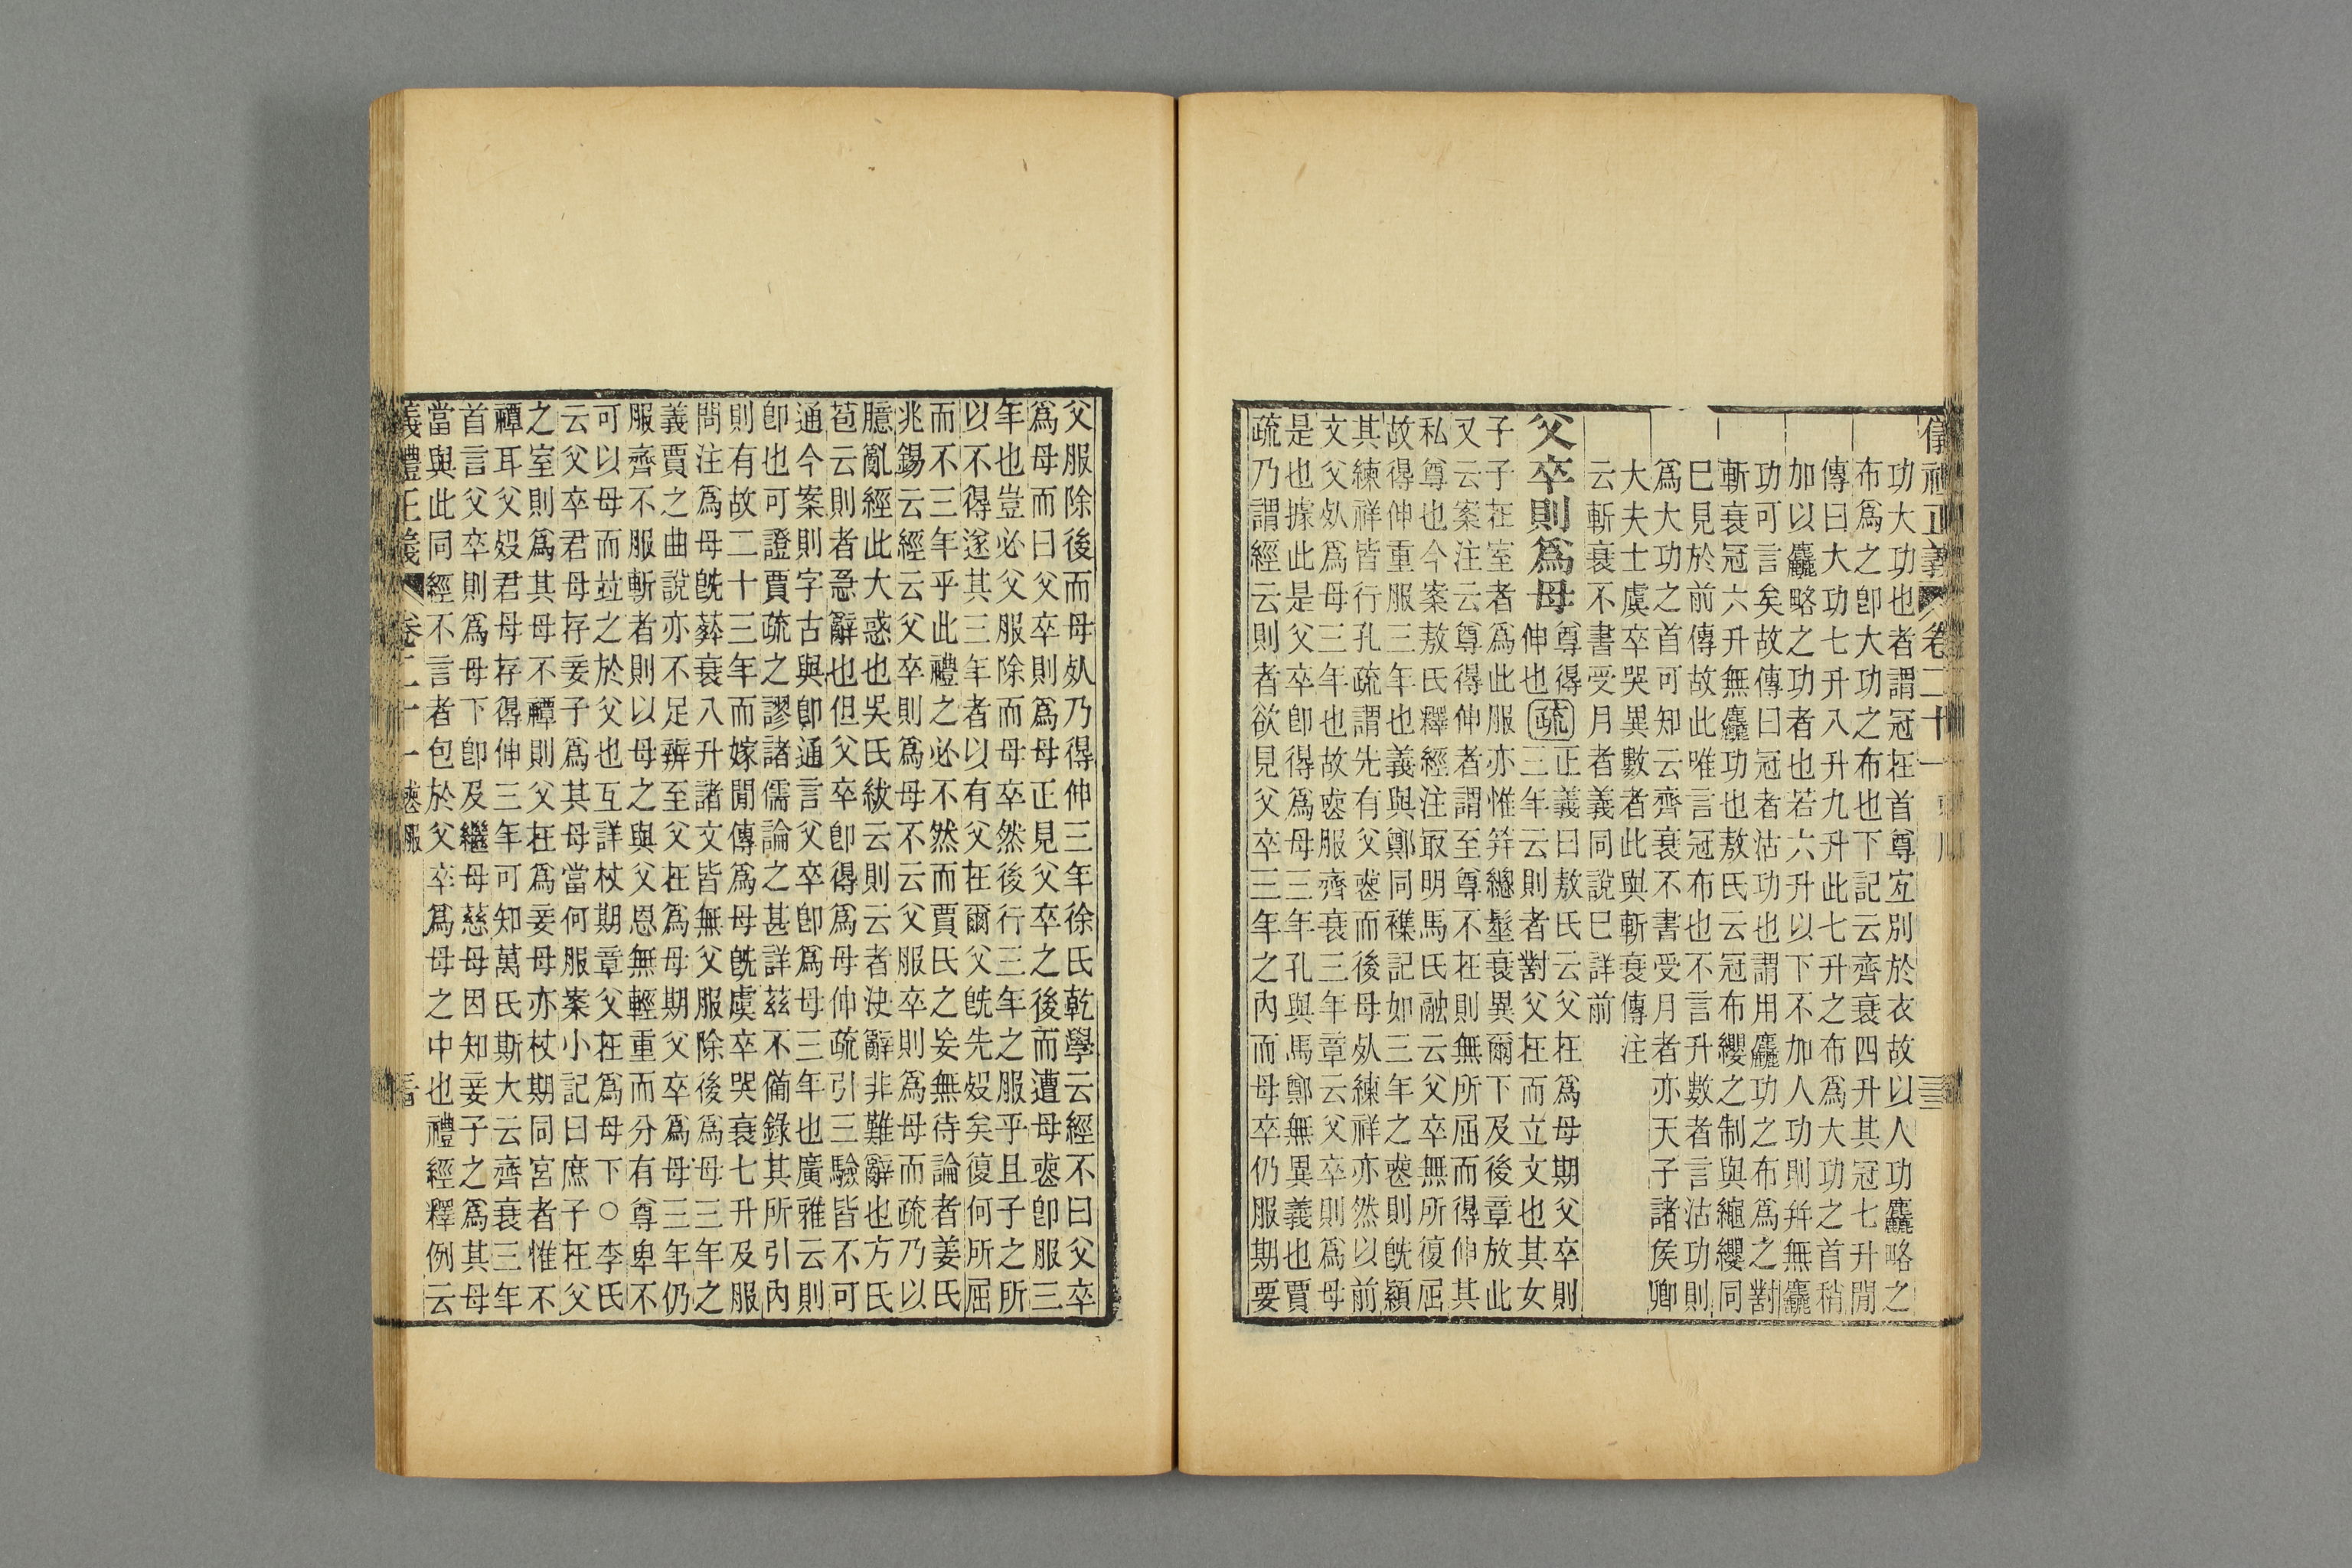 儀禮正義 卷二十一
功大功也者謂冠在首尊宜別於衣故以人功麤略之
布爲之卽大功之布也下記云齊衰四升其冠七升閒
傳曰大功七升八升九升此七升之布爲大功之首稍
加以麤略之功者也若六升以下不加人功則幷無麤
功可言矣故傳曰冠者沽功也謂用麤功之布爲之對
斬衰冠六升無麤功也敖氏云冠布纓之制與繩纓同
巳見於前傳故此唯言冠布也不言升數者言沽功則
爲大功之首可知云齊衰不書受月者亦天子諸侯卿
大夫士虞卒哭異數者此與斬衰傳注
云斬衰不書受月者義同說巳詳前
父卒則爲母
尊得
伸也
疏
正義曰敖氏云父在爲母期父卒則
三年云則者對父在而立文也其女
子子在室者爲此服亦惟笄總髽衰異爾下及後章放此
又云案注云尊得伸者謂至尊不在則無所屈而得伸其
私尊也今案敖氏釋經注㝡明馬氏融云父卒無所復屈
故得伸重服三年也義與鄭同而襍記如三年之喪則旣顈
其練祥皆行孔疏謂先有父喪而後母死練祥亦然以前
文父死爲母三年也故喪服齊衰三年章云父卒則爲母
是也據此是父卒卽得爲母三年孔與馬鄭無異義也賈
疏乃謂經云則者欲見父卒三年之內而母卒仍服期要
父服除後而母死乃得伸三年徐氏乾學云經不曰父卒
爲母而曰父卒則爲母正見父卒之後而遭母喪卽服三
年也豈必父服除而母卒然後行三年之服乎且子之所
以不得遂其三年者以有父在爾父旣先歿矣復何所屈
而不三年乎此禮之必不然而賈氏之妄無待論者姜氏
兆錫云經云父卒則爲母不云父服卒則爲母而疏乃以
臆亂經此大惑也吳氏紱云則云者決辭非難辭也方氏
苞云則者急辭也但父卒卽得爲母伸疏引三驗皆不可
通今案則字古與卽通言父卒卽爲母三年也廣雅云則
卽也可證賈疏之謬諸儒論之甚詳茲不備錄其所引內
則有故二十三年而嫁閒傳爲母旣虞卒哭衰七升及服
問注爲母旣葬衰八升諸文皆無父服除後爲母三年之
義賈之曲說亦不足辨至父在爲母期父卒爲母三年仍
服齊不服斬者則以母之與父恩無輕重而分有尊卑不
可以母而竝之於父也互詳杖期章父在爲母下○李氏
云父卒君母存妾子爲其母當何服案小記曰庶子在父
之室則爲其母不禫則父在爲妾母亦杖期同宮者惟不
禫耳父歿君母存得伸三年可知萬氏斯大云齊衰三年
首言父卒則爲母下卽及繼母慈母因知妾子之爲其母
當與此同經不言者包於父卒爲母之中也禮經釋例云
儀禮正義 卷二十一 喪服